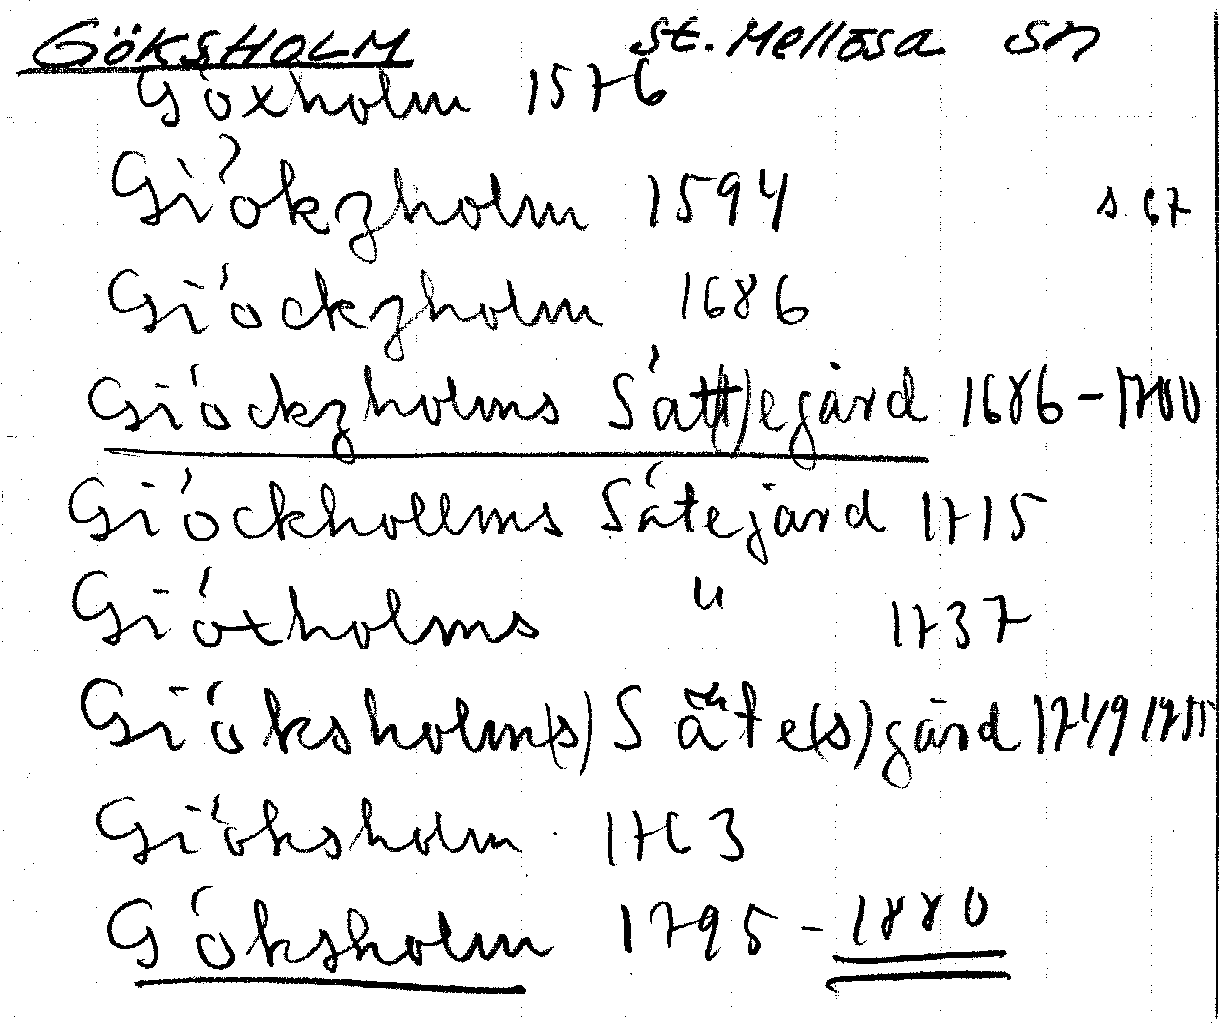 GÖKSHOLM St. Mellösa sn
Göxholm 1576
Giökzholm 1594 s 67
Giöckzholm 1686
Giöckzholms Sätt(t)egård 1686-1700
Giöckhollms Sätejård 1715
Giöxholms " 1737
Giöksholm(s) Säte(s)gård 1749 1755
Giöksholm 1763
Göksholm 1795-1880